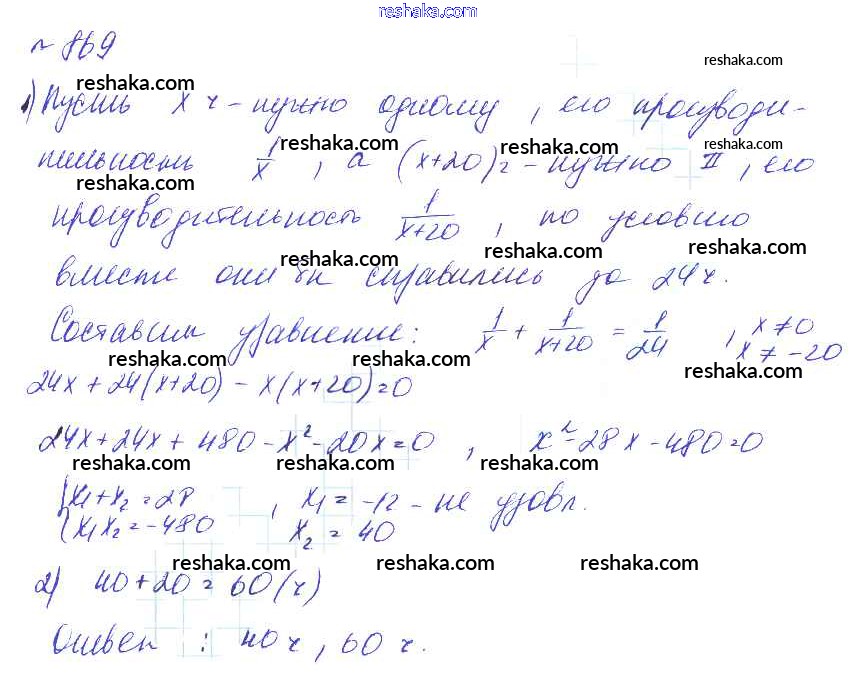 reshaka.com
№ 869
reshaka.com
reshaka.com
1) Пусть x ч - нужно одному, его производи-
reshaka.com reshaka.com reshaka.com
тельность 1/x, а (x+20) ч - нужно II, его
reshaka.com reshaka.com
производительность 1/(x+20), по условию
reshaka.com reshaka.com reshaka.com
вместе они справились до 24 ч.
Составим уравнение: 1/x + 1/(x+20) = 1/24, x ≠ 0
x ≠ -20
reshaka.com reshaka.com reshaka.com
24x + 24(x+20) - x(x+20) = 0
24x + 24x + 480 - x² - 20x = 0, x² - 28x - 480 = 0
reshaka.com reshaka.com reshaka.com
{x₁ + x₂ = 28, x₁ = -12 - не удовл.
{x₁x₂ = -480 x₂ = 40
reshaka.com reshaka.com reshaka.com
2) 40 + 20 = 60 (ч)
Ответ: 40 ч, 60 ч.